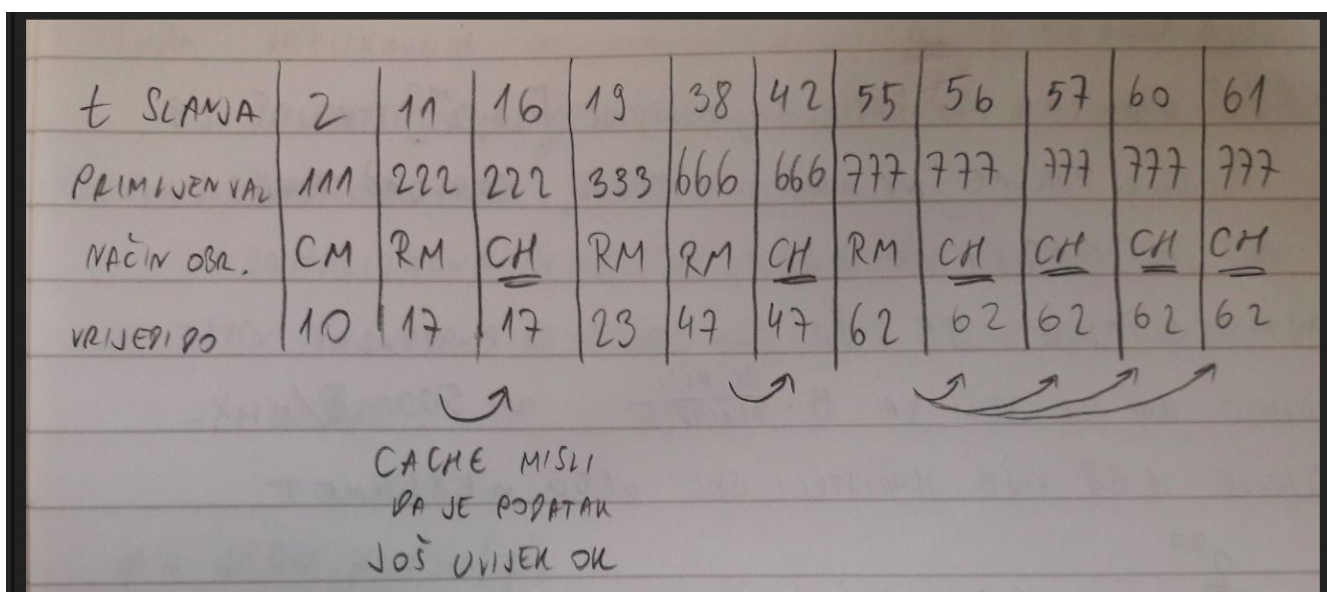 t SLANJA 2 11 16 19 38 42 55 56 57 60 61
PRIMIJEN VAL 111 222 222 333 666 666 777 777 777 777 777
NAČIN OBR. CM RM CH RM RM CH RM CH CH CH CH
VRIJEDI DO 10 17 17 23 47 47 62 62 62 62 62
CACHE MISLI
DA JE PODATAK
JOŠ UVIJEK OK